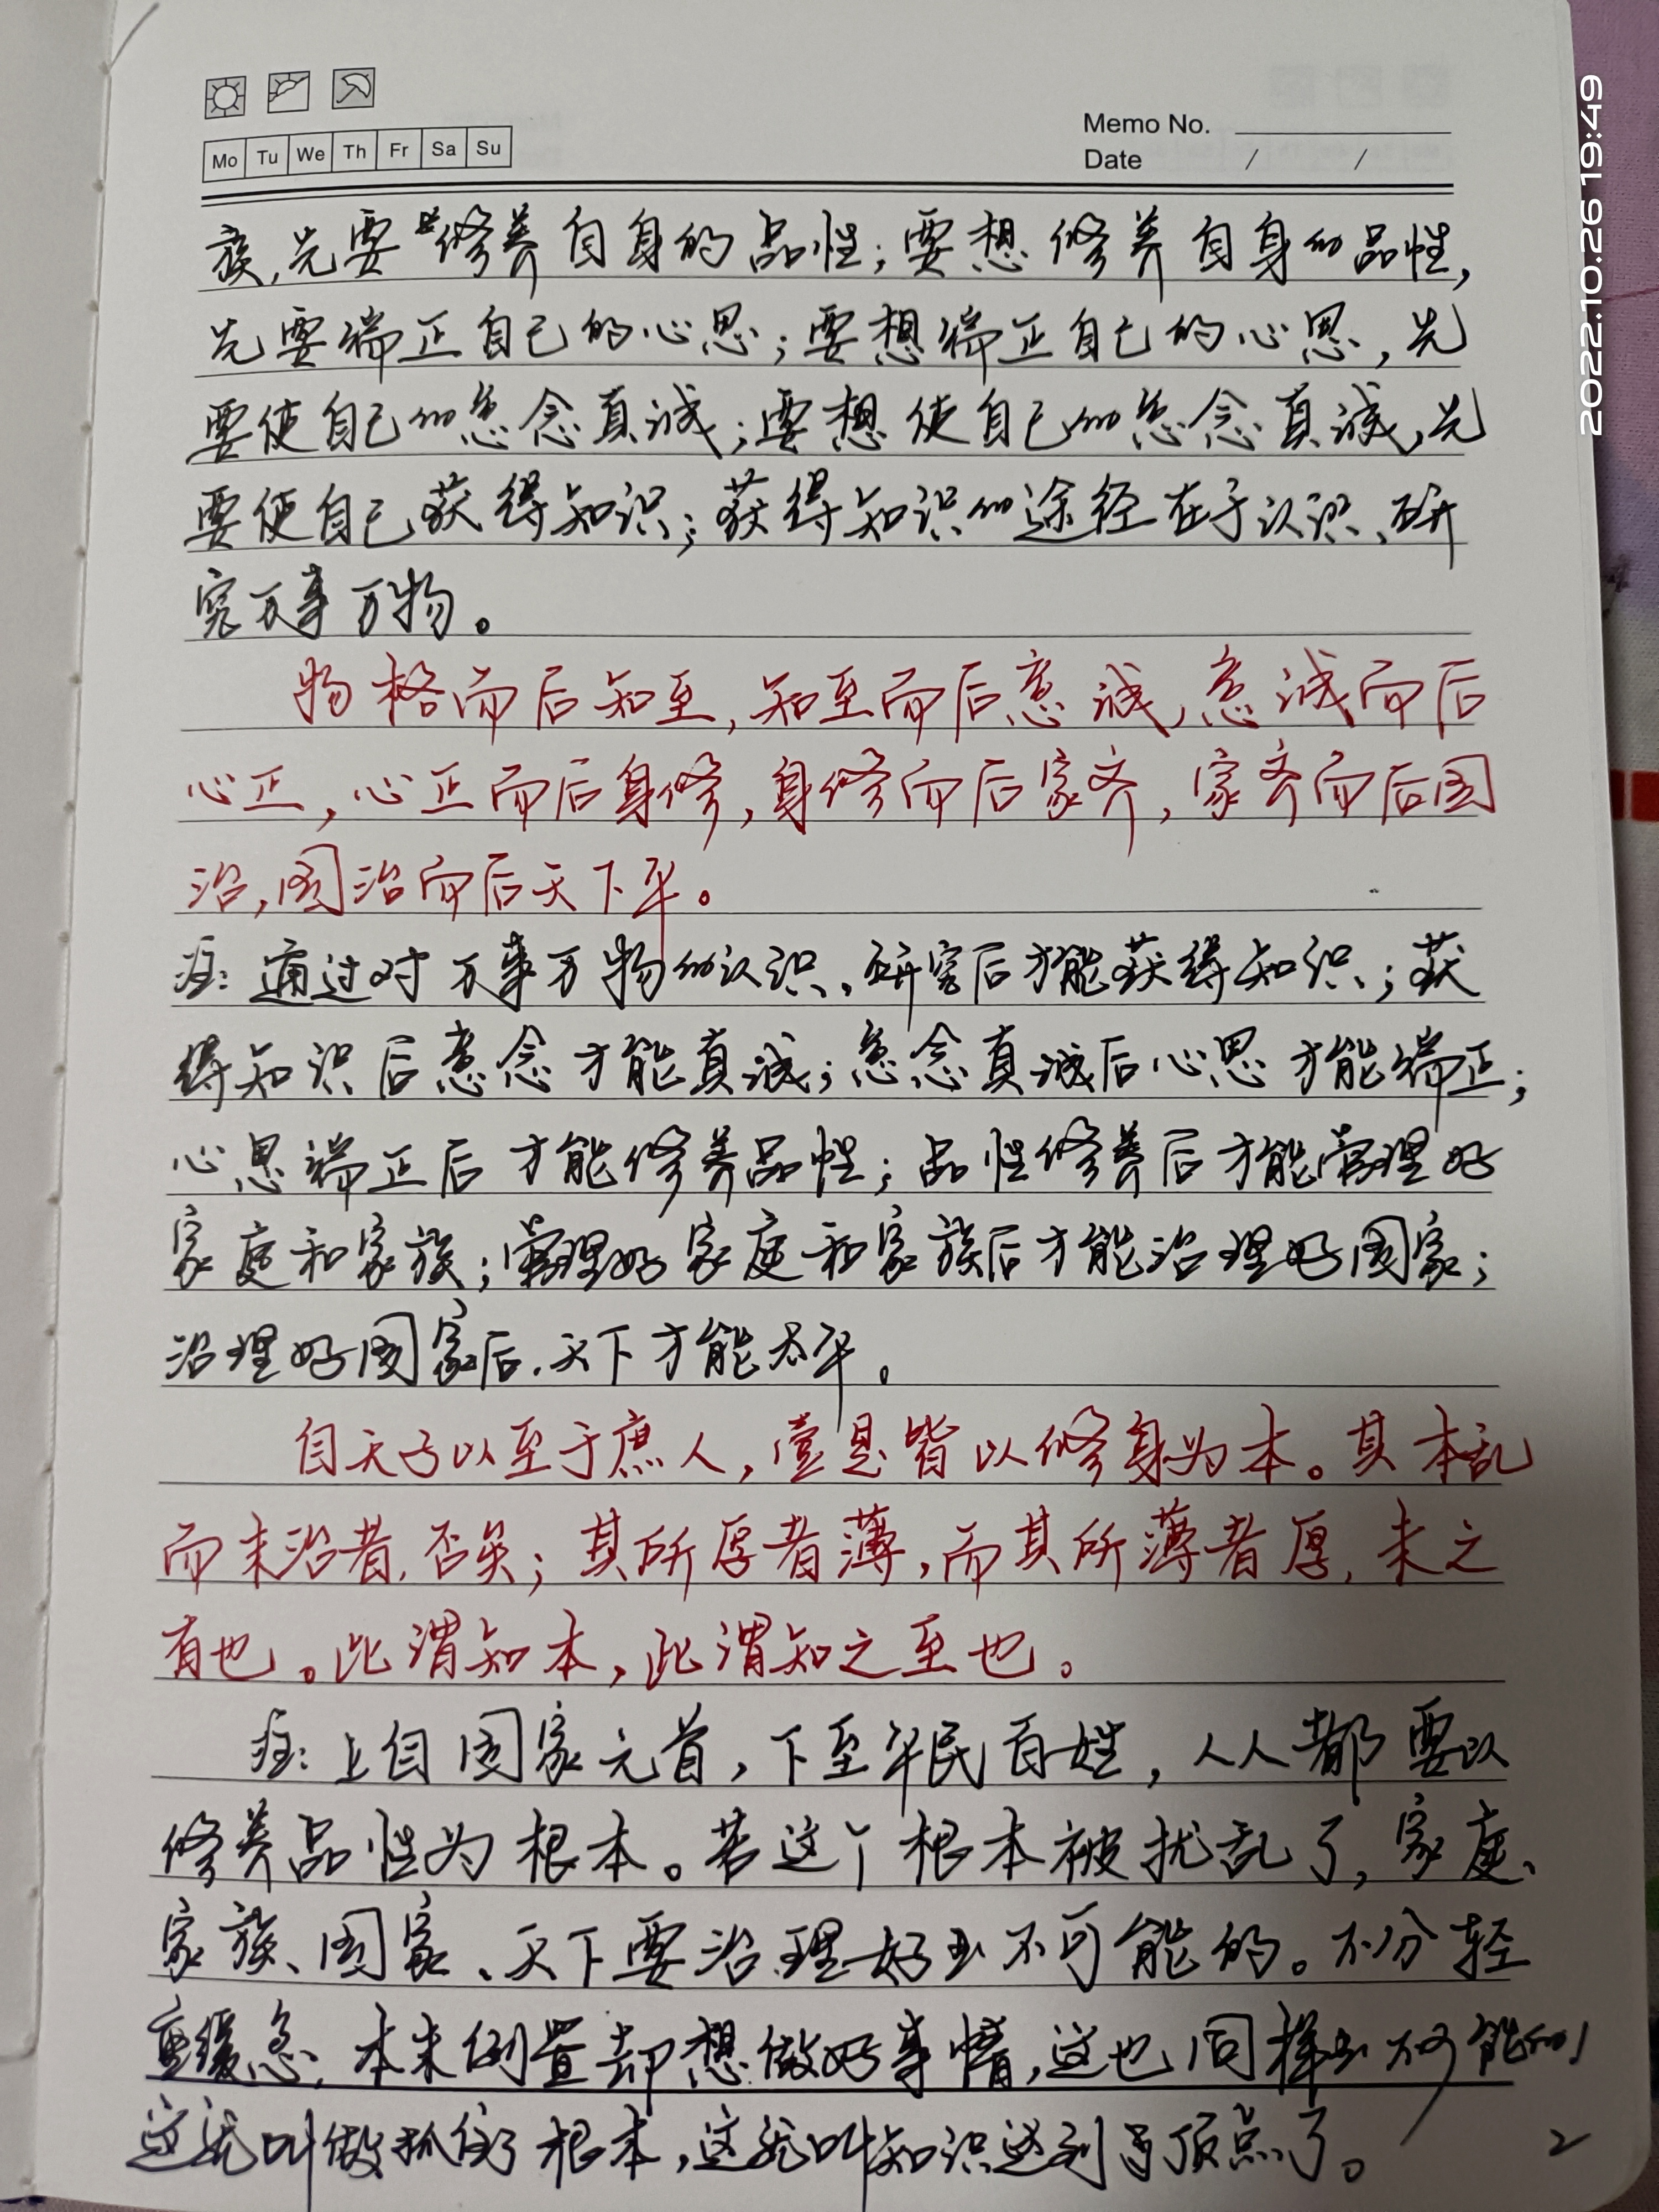 Mo Tu We Th Fr Sa Su
Memo No.
Date / /
2022.10.26 19:49
族,先要修养自身的品性;要想修养自身的品性,
先要端正自己的心思;要想端正自己的心思,先
要使自己的意念真诚;要想使自己的意念真诚,先
要使自己获得知识;获得知识的途径在于认识、研
究万事万物。
物格而后知至,知至而后意诚,意诚而后
心正,心正而后身修,身修而后家齐,家齐而后国
治,国治而后天下平。
注:通过对万事万物的认识,研究后才能获得知识;获
得知识后意念才能真诚;意念真诚后心思才能端正;
心思端正后才能修养品性;品性修养后才能管理好
家庭和家族;管理好家庭和家族后才能治理好国家;
治理好国家后,天下才能太平。
自天子以至于庶人,壹是皆以修身为本。其本乱
而末治者,否矣;其所厚者薄,而其所薄者厚,未之
有也。此谓知本,此谓知之至也。
注:上自国家元首,下至平民百姓,人人都要以
修养品性为根本。若这个根本被扰乱了,家庭、
家族、国家、天下要治理好是不可能的。不分轻
重缓急,本末倒置却想做好事情,这也同样是不可能的!
这就叫做抓住了根本,这就叫知识达到了顶点了。
2